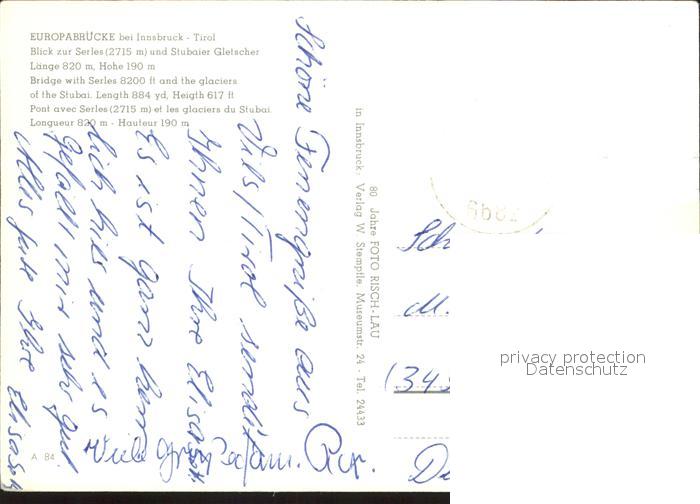 EUROPABRÜCKE bei Innsbruck - Tirol
Blick zur Serles (2715 m) und Stubaier Gletscher
Länge 820 m, Hohe 190 m
Bridge with Serles 8200 ft and the glaciers
of the Stubai. Length 884 yd, Heigth 617 ft
Pont avec Serles (2715 m) et les glaciers du Stubai.
Longueur 820 m - Hauteur 190 m
Schöne Feriengrüße aus
Vils/Tirol sendet
Ihnen Ihre
Es ist ganz
lich hier und es
gefällt mir sehr gut
Alles Gute Ihre
Viele
A 84
80 Jahre FOTO RISCH-LAU
in Innsbruck: Verlag W. Stempfle, Museumstr. 24 - Tel. 24433
Sch
M.
(34
privacy protection
Datenschutz